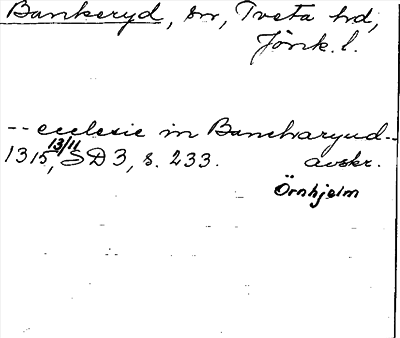 Bankeryd, sn, Tveta hd,
Jönk. l.
-- ecclesie in Banchvaryud --
1315, 13/11 SD 3, s. 233. avskr.
Örnhjelm